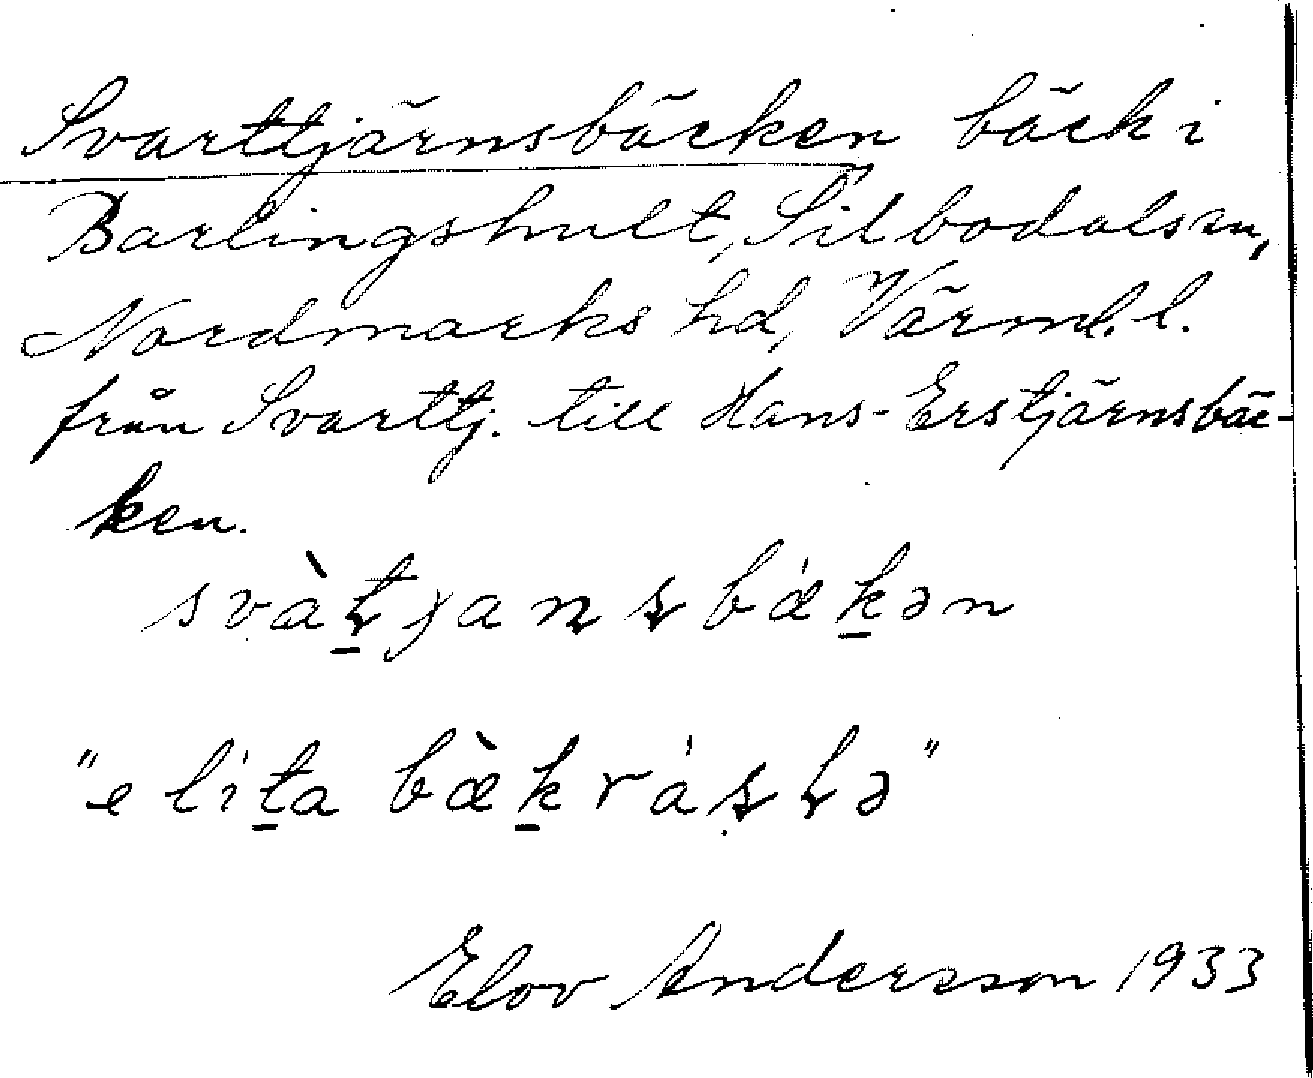 Svarttjärnsbäcken bäck i
Barlingshult, Silbodals sn,
Nordmarks hd, Värml. l.
från Svarttj. till Hans-Erstjärnsbäc-
ken.
svàt̲jansbǽk̲ən
"e lít̲a bæ̀k̲ráslə"
Elov Andersson 1933